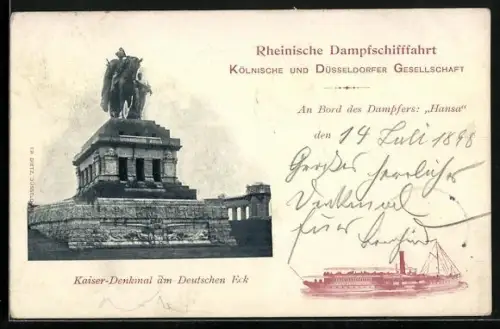 Rheinische Dampfschifffahrt
Kölnische und Düsseldorfer Gesellschaft
An Bord des Dampfers: „Hansa“
den 14 Juli 1898
Großes herrliches
Denkmal
Kaiser-Denkmal am Deutschen Eck